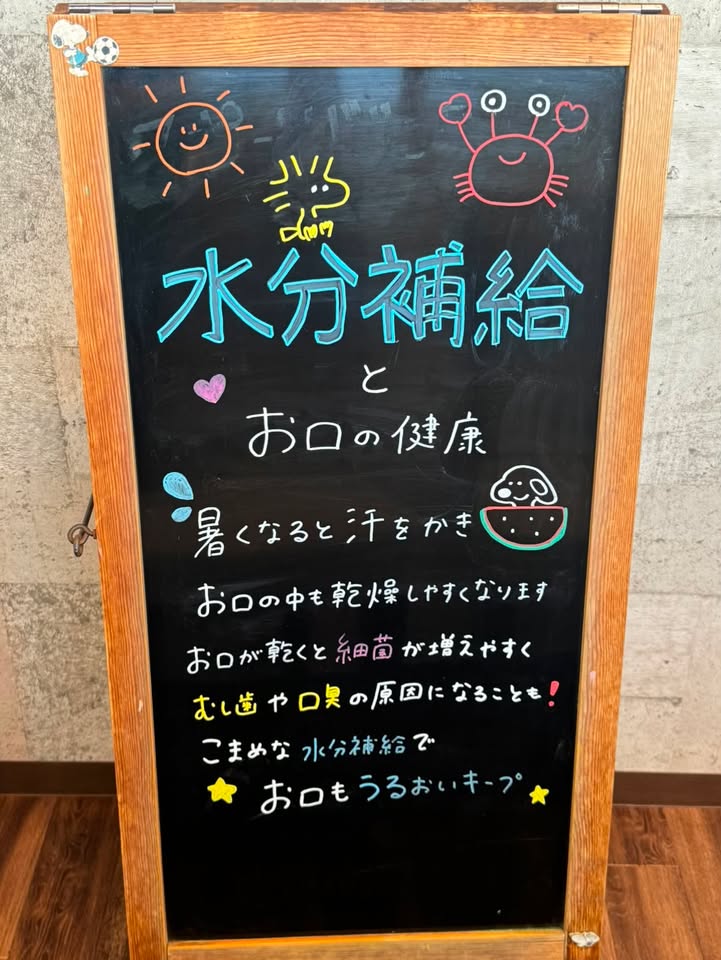 水分補給
と
お口の健康
暑くなると汗をかき
お口の中も乾燥しやすくなります
お口が乾くと細菌が増えやすく
むし歯や口臭の原因になることも!
こまめな水分補給で
お口もうるおいキープ